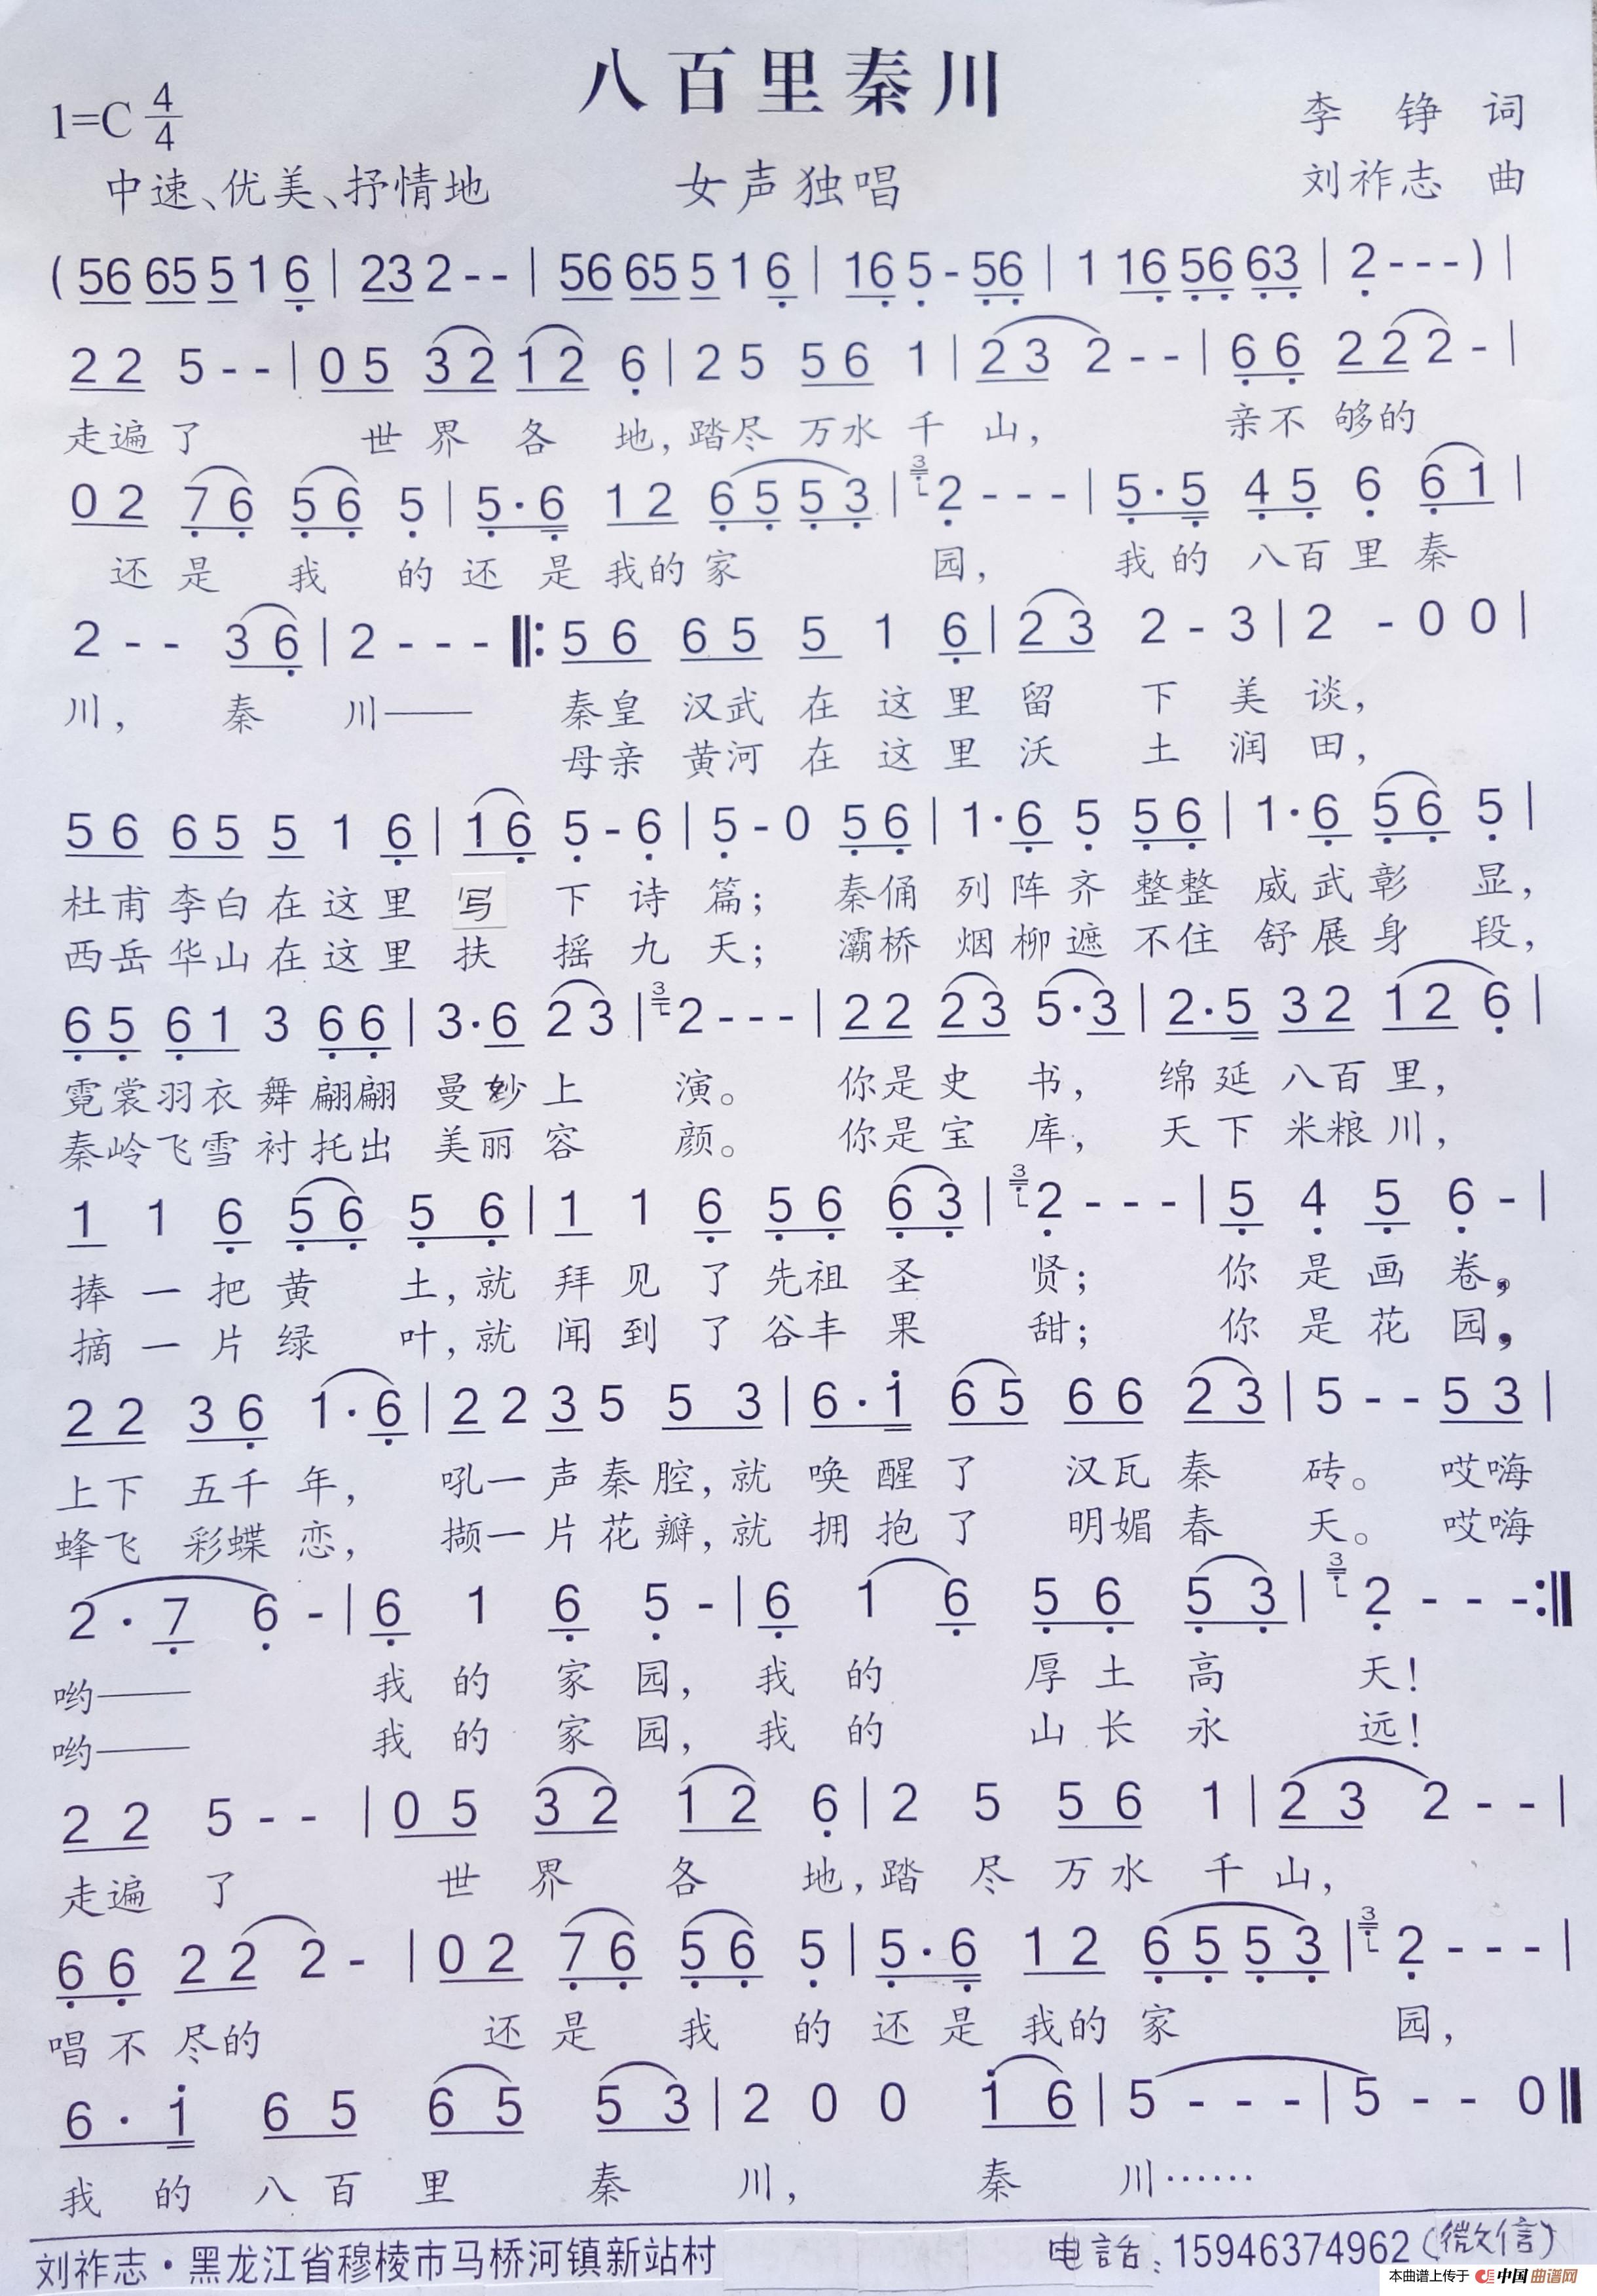 八百里秦川
1=C 4/4
李 铮 词
中速、优美、抒情地 女声独唱 刘祚志 曲
( 56 65 5 1 6 | 23 2 - - | 56 65 5 1 6 | 16 5 - 56 | 1 16 56 63 | 2 - - - ) |
2 2 5 - - | 0 5 3 2 1 2 6 | 2 5 5 6 1 | 2 3 2 - - | 6 6 2 2 2 - |
走遍了 世界各地,踏尽万水千山, 亲不够的
0 2 7 6 5 6 5 | 5 · 6 1 2 6 5 5 3 | 3 2 - - - | 5 · 5 4 5 6 6 1 |
还是我的还是我的家园, 我的八百里秦
2 - - 3 6 | 2 - - - ‖: 5 6 6 5 5 1 6 | 2 3 2 - 3 | 2 - 0 0 |
川, 秦川—— 秦皇汉武在这里留下美谈,
母亲黄河在这里沃土润田,
5 6 6 5 5 1 6 | 1 6 5 - 6 | 5 - 0 5 6 | 1 · 6 5 5 6 | 1 · 6 5 6 5 |
杜甫李白在这里写下诗篇; 秦俑列阵齐整整威武彰显,
西岳华山在这里扶摇九天; 灞桥烟柳遮不住舒展身段,
6 5 6 1 3 6 6 | 3 · 6 2 3 | 3 2 - - - | 2 2 2 3 5 · 3 | 2 · 5 3 2 1 2 6 |
霓裳羽衣舞翩翩曼妙上演。 你是史书, 绵延八百里,
秦岭飞雪衬托出美丽容颜。 你是宝库, 天下米粮川,
1 1 6 5 6 5 6 | 1 1 6 5 6 6 3 | 3 2 - - - | 5 4 5 6 - |
捧一把黄土,就拜见了先祖圣贤; 你是画卷,
摘一片绿叶,就闻到了谷丰果甜; 你是花园,
2 2 3 6 1 · 6 | 2 2 3 5 5 3 | 6 · 1 6 5 6 6 2 3 | 5 - - 5 3 |
上下五千年, 吼一声秦腔,就唤醒了汉瓦秦砖。 哎嗨
蜂飞彩蝶恋, 撷一片花瓣,就拥抱了明媚春天。 哎嗨
2 · 7 6 - | 6 1 6 5 - | 6 1 6 5 6 5 3 | 3 2 - - - :‖
哟—— 我的家园, 我的厚土高天!
哟—— 我的家园, 我的山长永远!
2 2 5 - - | 0 5 3 2 1 2 6 | 2 5 5 6 1 | 2 3 2 - - |
走遍了 世界各地,踏尽万水千山,
6 6 2 2 2 - | 0 2 7 6 5 6 5 | 5 · 6 1 2 6 5 5 3 | 3 2 - - - |
唱不尽的 还是我的还是我的家园,
6 · 1 6 5 6 5 5 3 | 2 0 0 1 6 | 5 - - - | 5 - - 0 ‖
我的八百里秦川, 秦川……
刘祚志·黑龙江省穆棱市马桥河镇新站村 电話:15946374962(微信)
本曲谱上传于 中国曲谱网